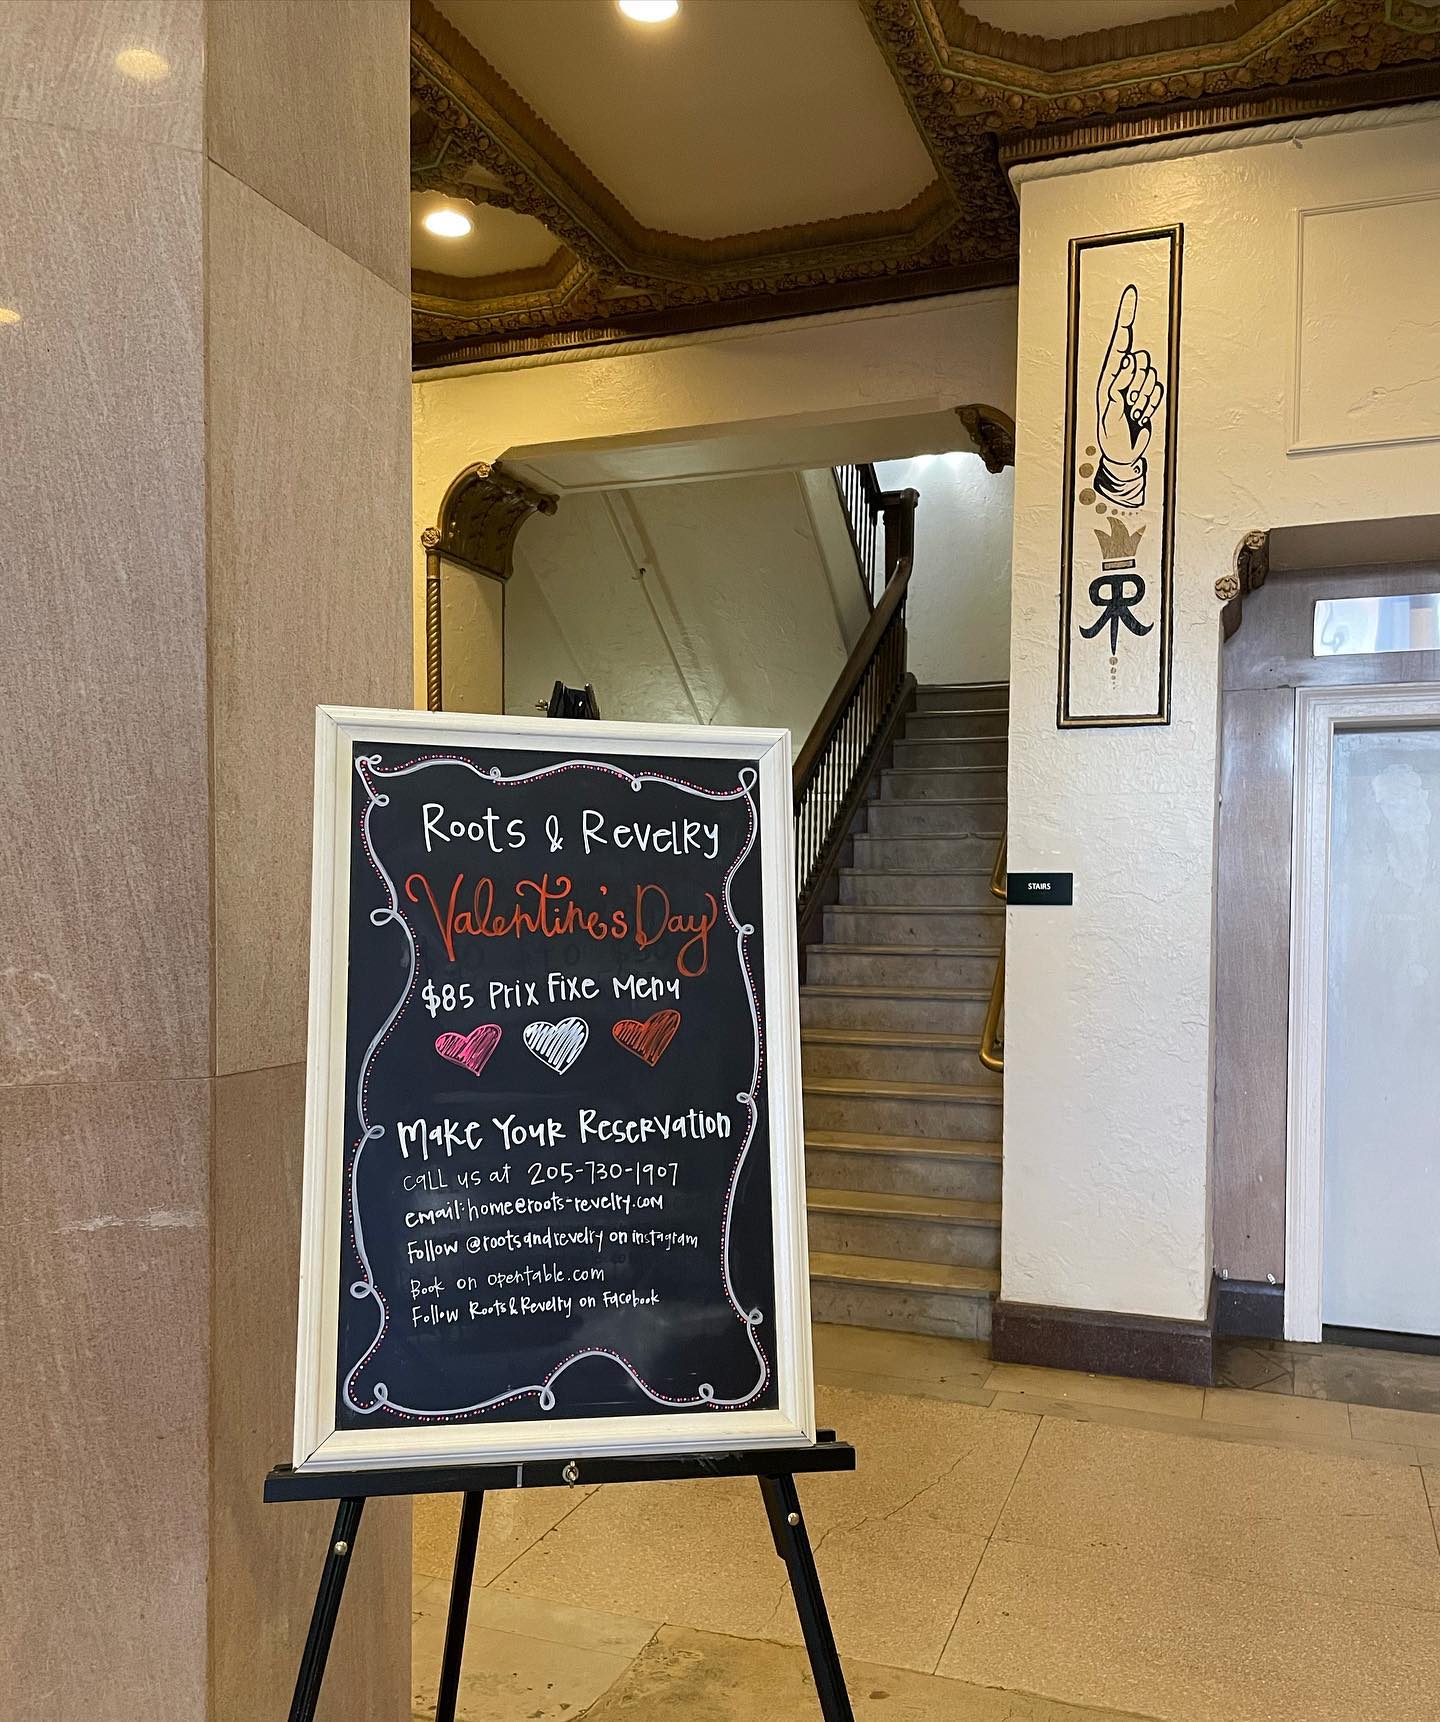 Roots & Revelry
Valentine's Day
$85 Prix Fixe Menu
Make Your Reservation
call us at 205-730-1907
email: home@roots-revelry.com
Follow @rootsandrevelry on instagram
Book on opentable.com
Follow Roots & Revelry on Facebook
RR
STAIRS